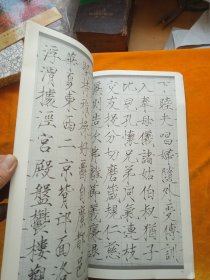 下睦夫唱婦隨外受傅訓
入奉母儀諸姑伯叔猶子
比兒孔懷兄弟同氣連枝
交友投分切磨箴規仁慈
造次弗離節義廉
操好爵自縻都邑
華夏東西二京背邙面洛
浮渭據涇宮殿盤鬱樓觀